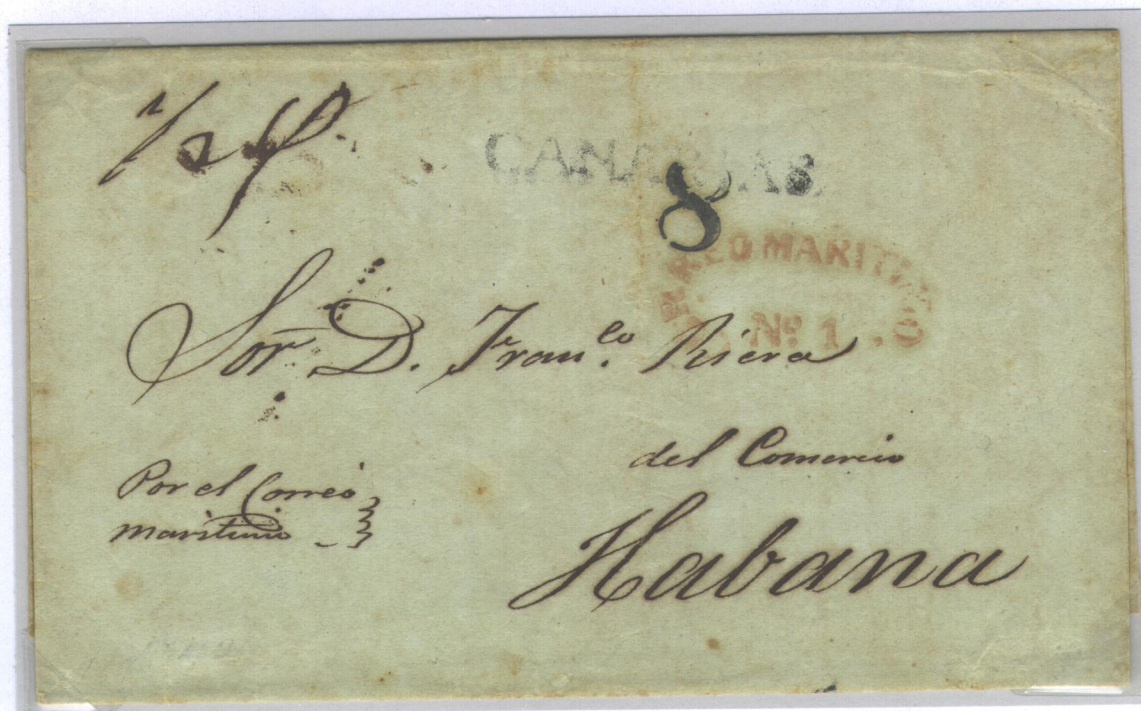 1/2
CANARIAS
8
BARCO MARITIMO
Nº 1. S
Sor D. Franco. Riera
del Comercio
Por el Correo
maritimo
Habana